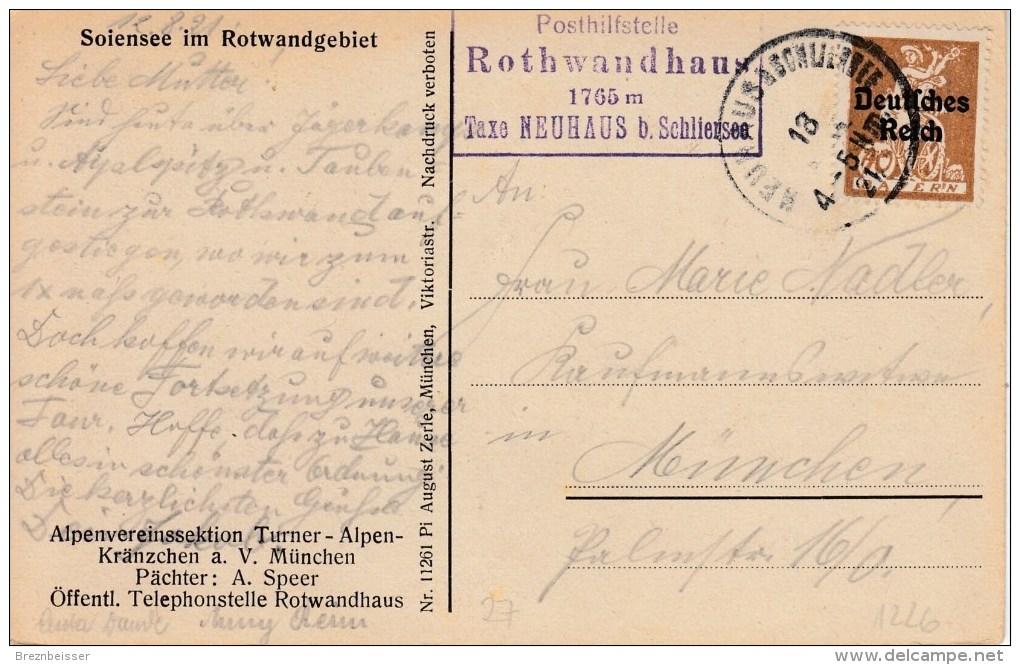 12.8.21
Soiensee im Rotwandgebiet
Liebe Mutter!
Sind heute über Jägerkamp
u. Aiplspitz u. Tauben
stein zur Rothwand auf-
gestiegen, wo wir zum
1x naß geworden sind.
Doch hoffen wir auf weitere
schöne Fortsetzung unserer
Tour. Hoffe, daß zu Hause
alles in schönster Ordnung
Die herzlichsten Grüße
Alpenvereinssektion Turner-Alpen-
Kränzchen a. V. München
Pächter: A. Speer
Öffentl. Telephonstelle Rotwandhaus
Nr. 11261 Pi August Zerle, München, Viktoriastr. Nachdruck verboten
Posthilfstelle
Rothwandhaus
1765 m
Taxe NEUHAUS b. Schliersee
NEUHAUS B. SCHLIERSEE
13
4-5 NM
21
Deutsches
Reich
BAYERN
An:
Frau Marie Nadler,
Kaufmannswitwe
in
München,
Palmstr. 16/0.
27
1226
Breznbeisser
www.delcampe.net